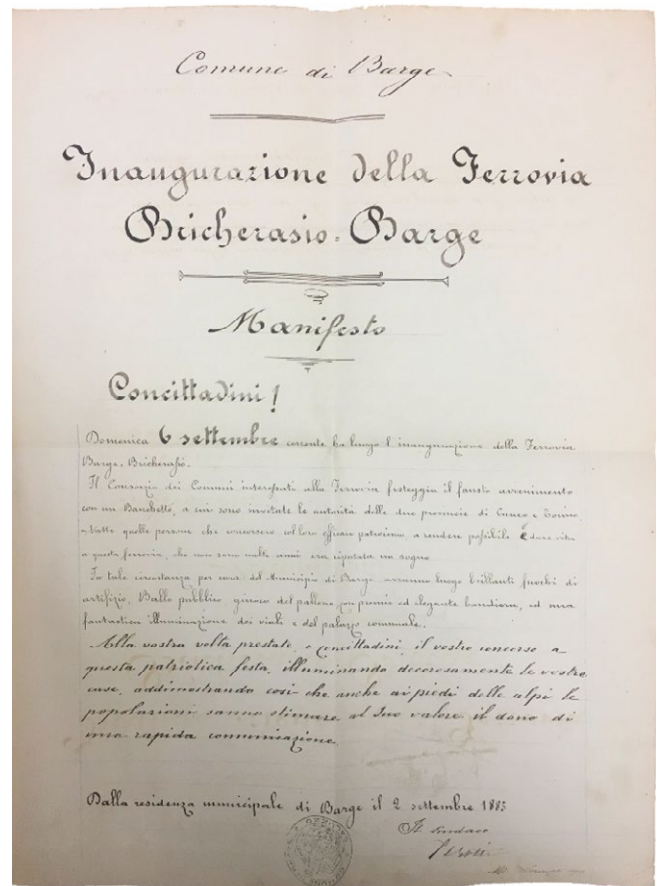 Comune di Barge
Inaugurazione della Ferrovia
Bricherasio-Barge
Manifesto
Concittadini!
Domenica 6 settembre corrente ha luogo l'inaugurazione della Ferrovia
Barge-Bricherasio.
Il Consorzio dei Comuni interessati alla Ferrovia festeggia il fausto avvenimento
con un Banchetto, a cui sono invitate le autorità delle due provincie di Cuneo e Torino,
e tutte quelle persone che concorsero col loro efficace patrocinio, a rendere possibile e dare vita
a questa ferrovia, che non sono molti anni era riputata un sogno.
In tale circostanza per cura del Municipio di Barge avranno luogo brillanti fuochi di
artifizio, Ballo pubblico, giuoco del pallone con premio ed elegante bandiera, ed una
fantastica illuminazione dei viali e del palazzo comunale.
Alla vostra volta prestate, o concittadini il vostro concorso a
questa patriotica festa, illuminando decorosamente le vostre
case, addimostrando così che anche ai piedi delle alpi le
popolazioni sanno stimare al suo valore il dono di
una rapida comunicazione.
Dalla residenza municipale di Barge il 2 settembre 1885
Il Sindaco